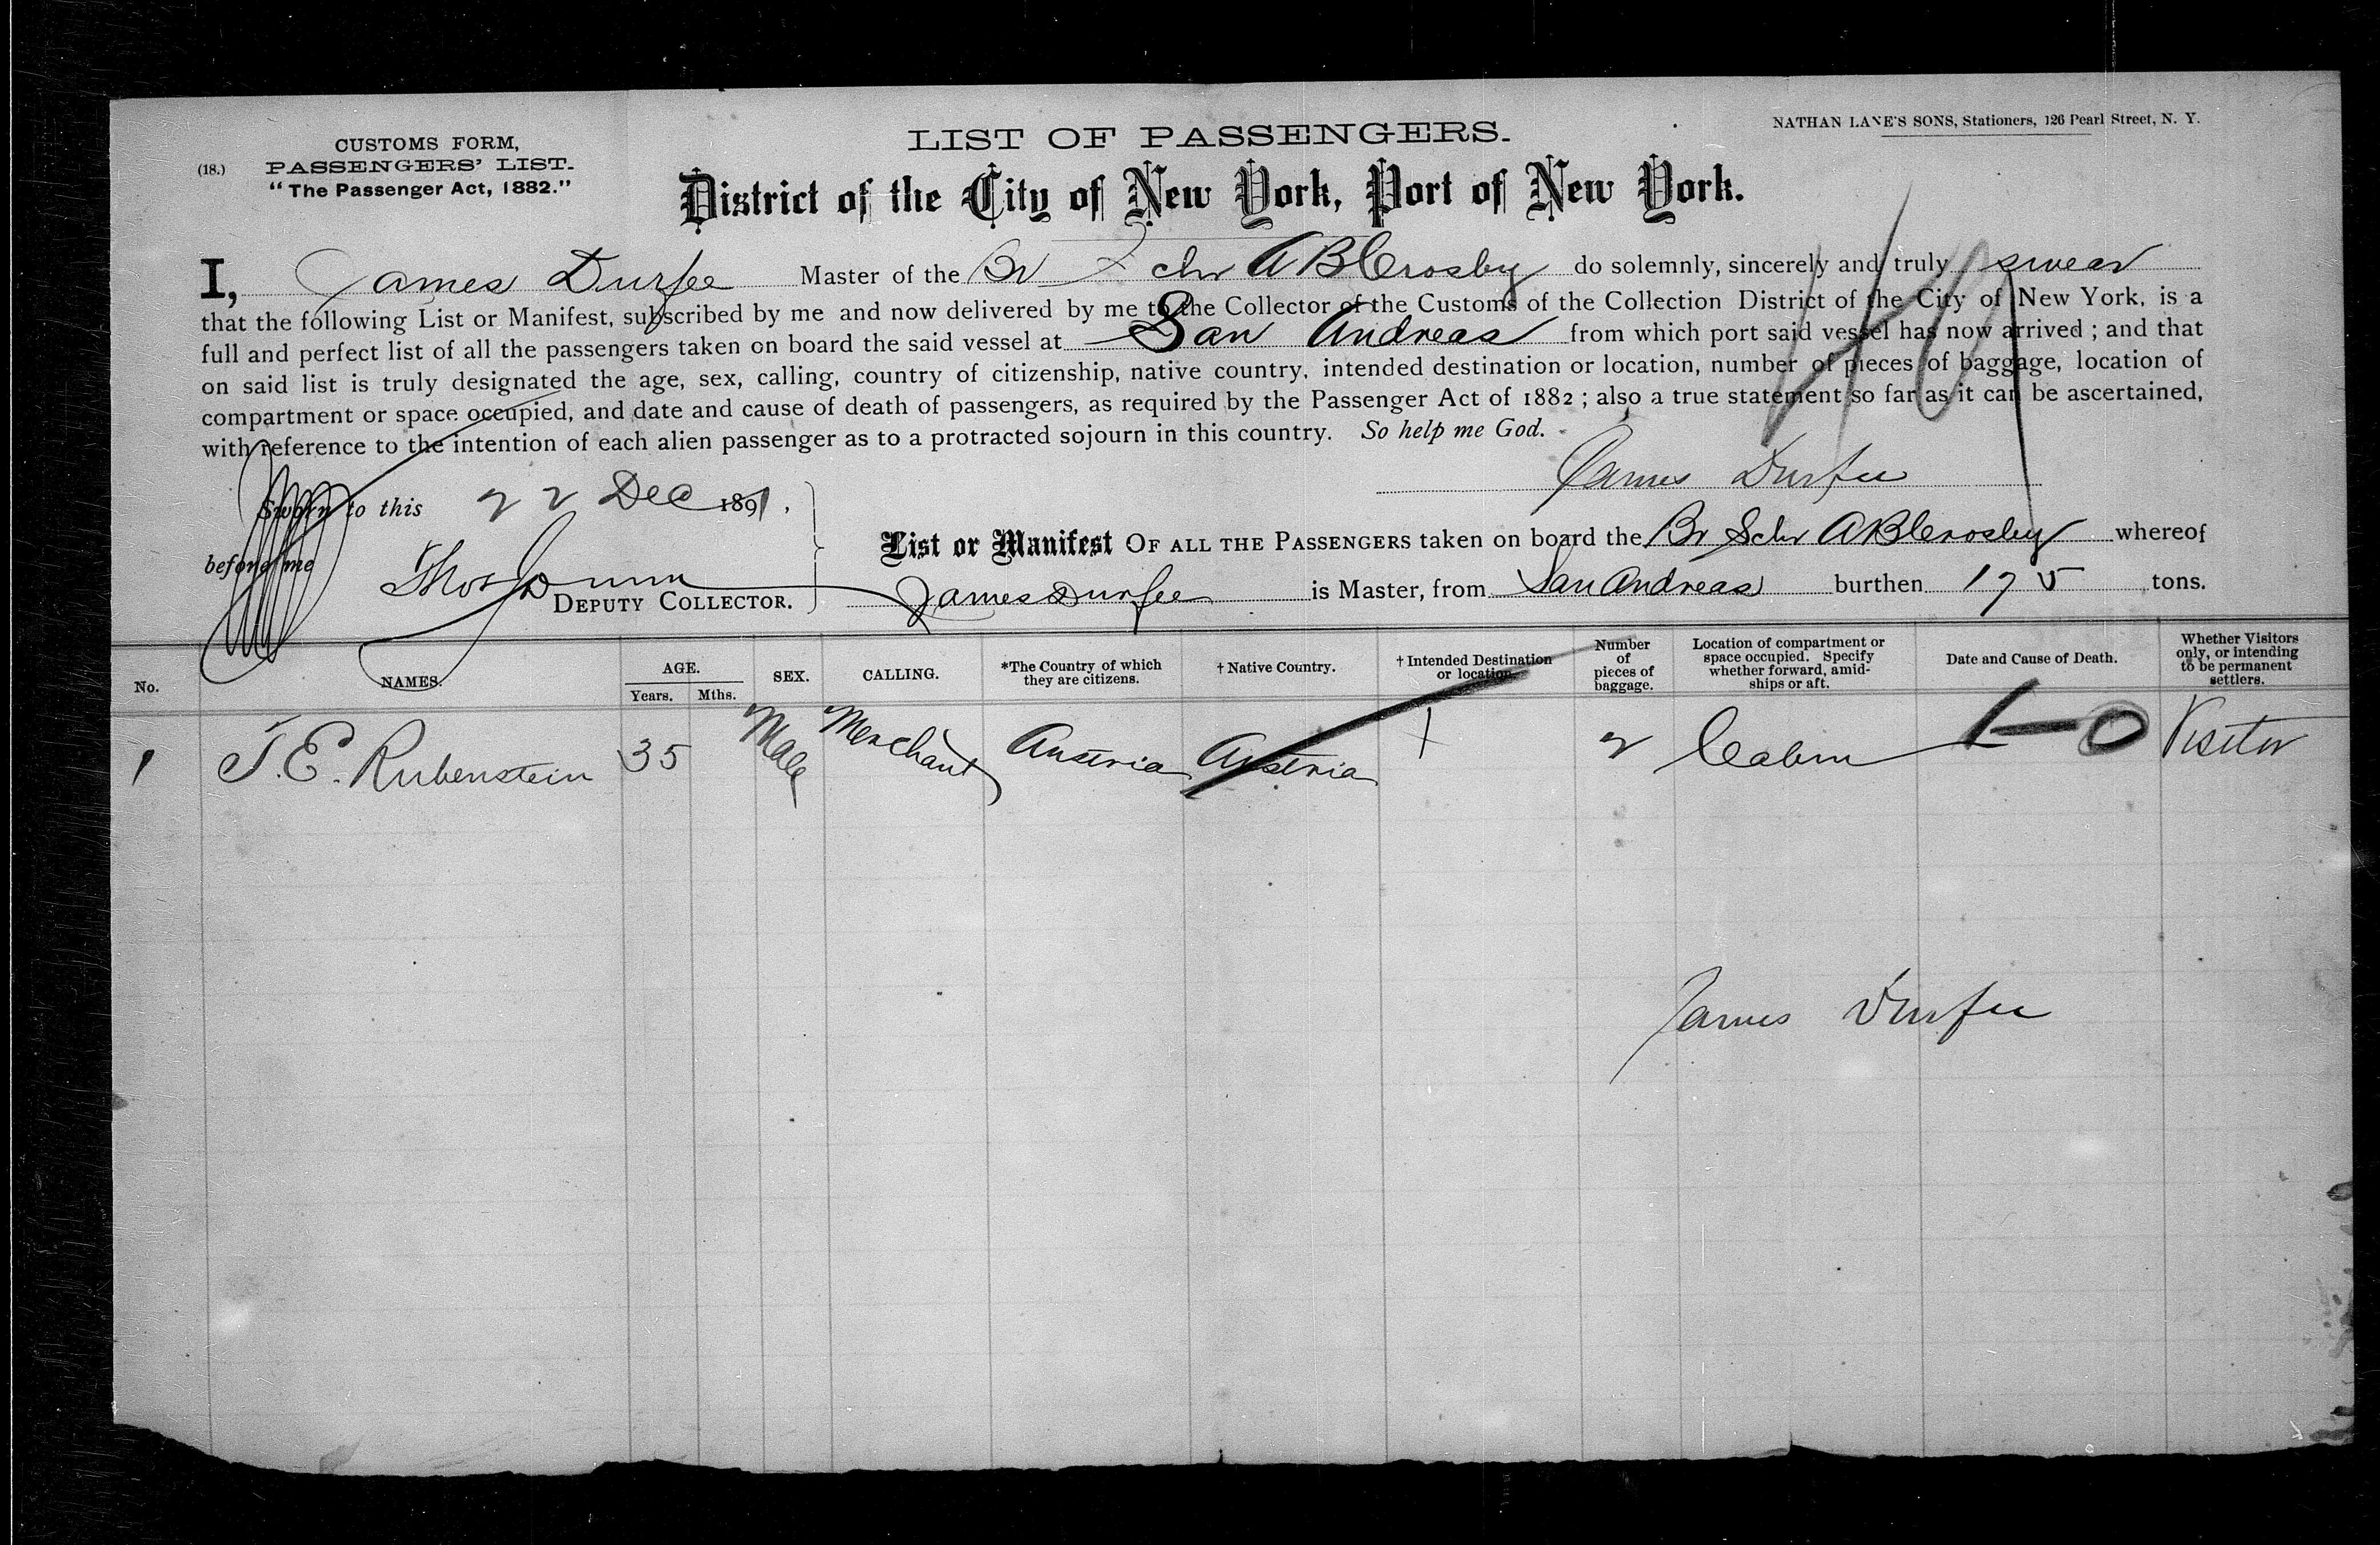 CUSTOMS FORM,
(18.) PASSENGERS' LIST.
"The Passenger Act, 1882."
LIST OF PASSENGERS.
NATHAN LANE'S SONS, Stationers, 126 Pearl Street, N. Y.
District of the City of New York, Port of New York.
I, James Durfee Master of the Br Schr A B Crosby do solemnly, sincerely and truly swear
that the following List or Manifest, subscribed by me and now delivered by me to the Collector of the Customs of the Collection District of the City of New York, is a
full and perfect list of all the passengers taken on board the said vessel at San Andreas from which port said vessel has now arrived ; and that
on said list is truly designated the age, sex, calling, country of citizenship, native country, intended destination or location, number of pieces of baggage, location of
compartment or space occupied, and date and cause of death of passengers, as required by the Passenger Act of 1882 ; also a true statement so far as it can be ascertained,
with reference to the intention of each alien passenger as to a protracted sojourn in this country. So help me God.
James Durfee
Sworn to this 22 Dec 1891,
before me
Thos Dunn
DEPUTY COLLECTOR.
List or Manifest OF ALL THE PASSENGERS taken on board the Br Schr A B Crosby whereof
James Durfee is Master, from San Andreas burthen 175 tons.
No. NAMES. AGE. Years. Mths. SEX. CALLING. *The Country of which they are citizens. † Native Country. † Intended Destination or location. Number of pieces of baggage. Location of compartment or space occupied. Specify whether forward, amidships or aft. Date and Cause of Death. Whether Visitors only, or intending to be permanent settlers.
1 E. Rubenstein 35 Male Merchant Austria Austria 2 Cabin 1-0 Visitor
James Durfee